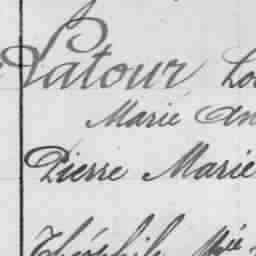 Latour Lo
Marie An
Pierre Marie
Théophile Mie